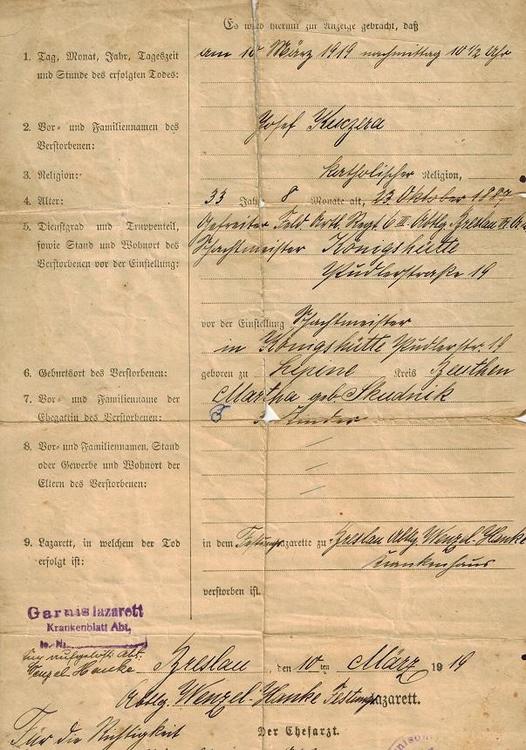 Es wird hiermit zur Anzeige gebracht, daß
1. Tag, Monat, Jahr, Tageszeit
und Stunde des erfolgten Todes:
am 10 März 1919 nachmittag 10 1/2 Uhr
2. Vor- und Familiennamen des
Verstorbenen:
Josef Kuczera
3. Religion:
katholischer Religion,
4. Alter:
33 Jahr 8 Monate alt, 23 Oktober 1887
5. Dienstgrad und Truppenteil,
sowie Stand und Wohnort des
Verstorbenen vor der Einstellung:
Gefreiter Feld Artl. Regt 6 III Abtlg. Breslau
Schachtmeister Königshütte
Pudlerstraße 19
vor der Einstellung Schachtmeister
in Königshütte Pudlerstr 19
6. Geburtsort des Verstorbenen:
geboren zu Lipine Kreis Beuthen
7. Vor- und Familienname der
Ehegattin des Verstorbenen:
Martha geb Skudnik
Kinder
8. Vor- und Familiennamen, Stand
oder Gewerbe und Wohnort der
Eltern des Verstorbenen:
9. Lazarett, in welchem der Tod
erfolgt ist:
in dem Festungslazarette zu Breslau Abtlg Wenzel-Hanke
Krankenhaus
verstorben ist.
Garnislazarett
Krankenblatt Abt.
Wenzel-Hanke
Breslau, den 10ten März 1919
Abtlg. Wenzel-Hanke Festungslazarett.
Für die Richtigkeit
Der Chefarzt.